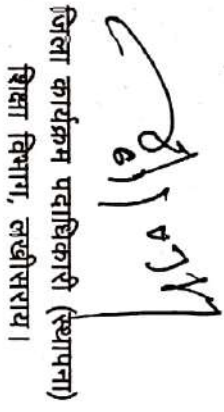 जिला कार्यक्रम पदाधिकारी (स्थापना)
शिक्षा विभाग, लखीसराय।